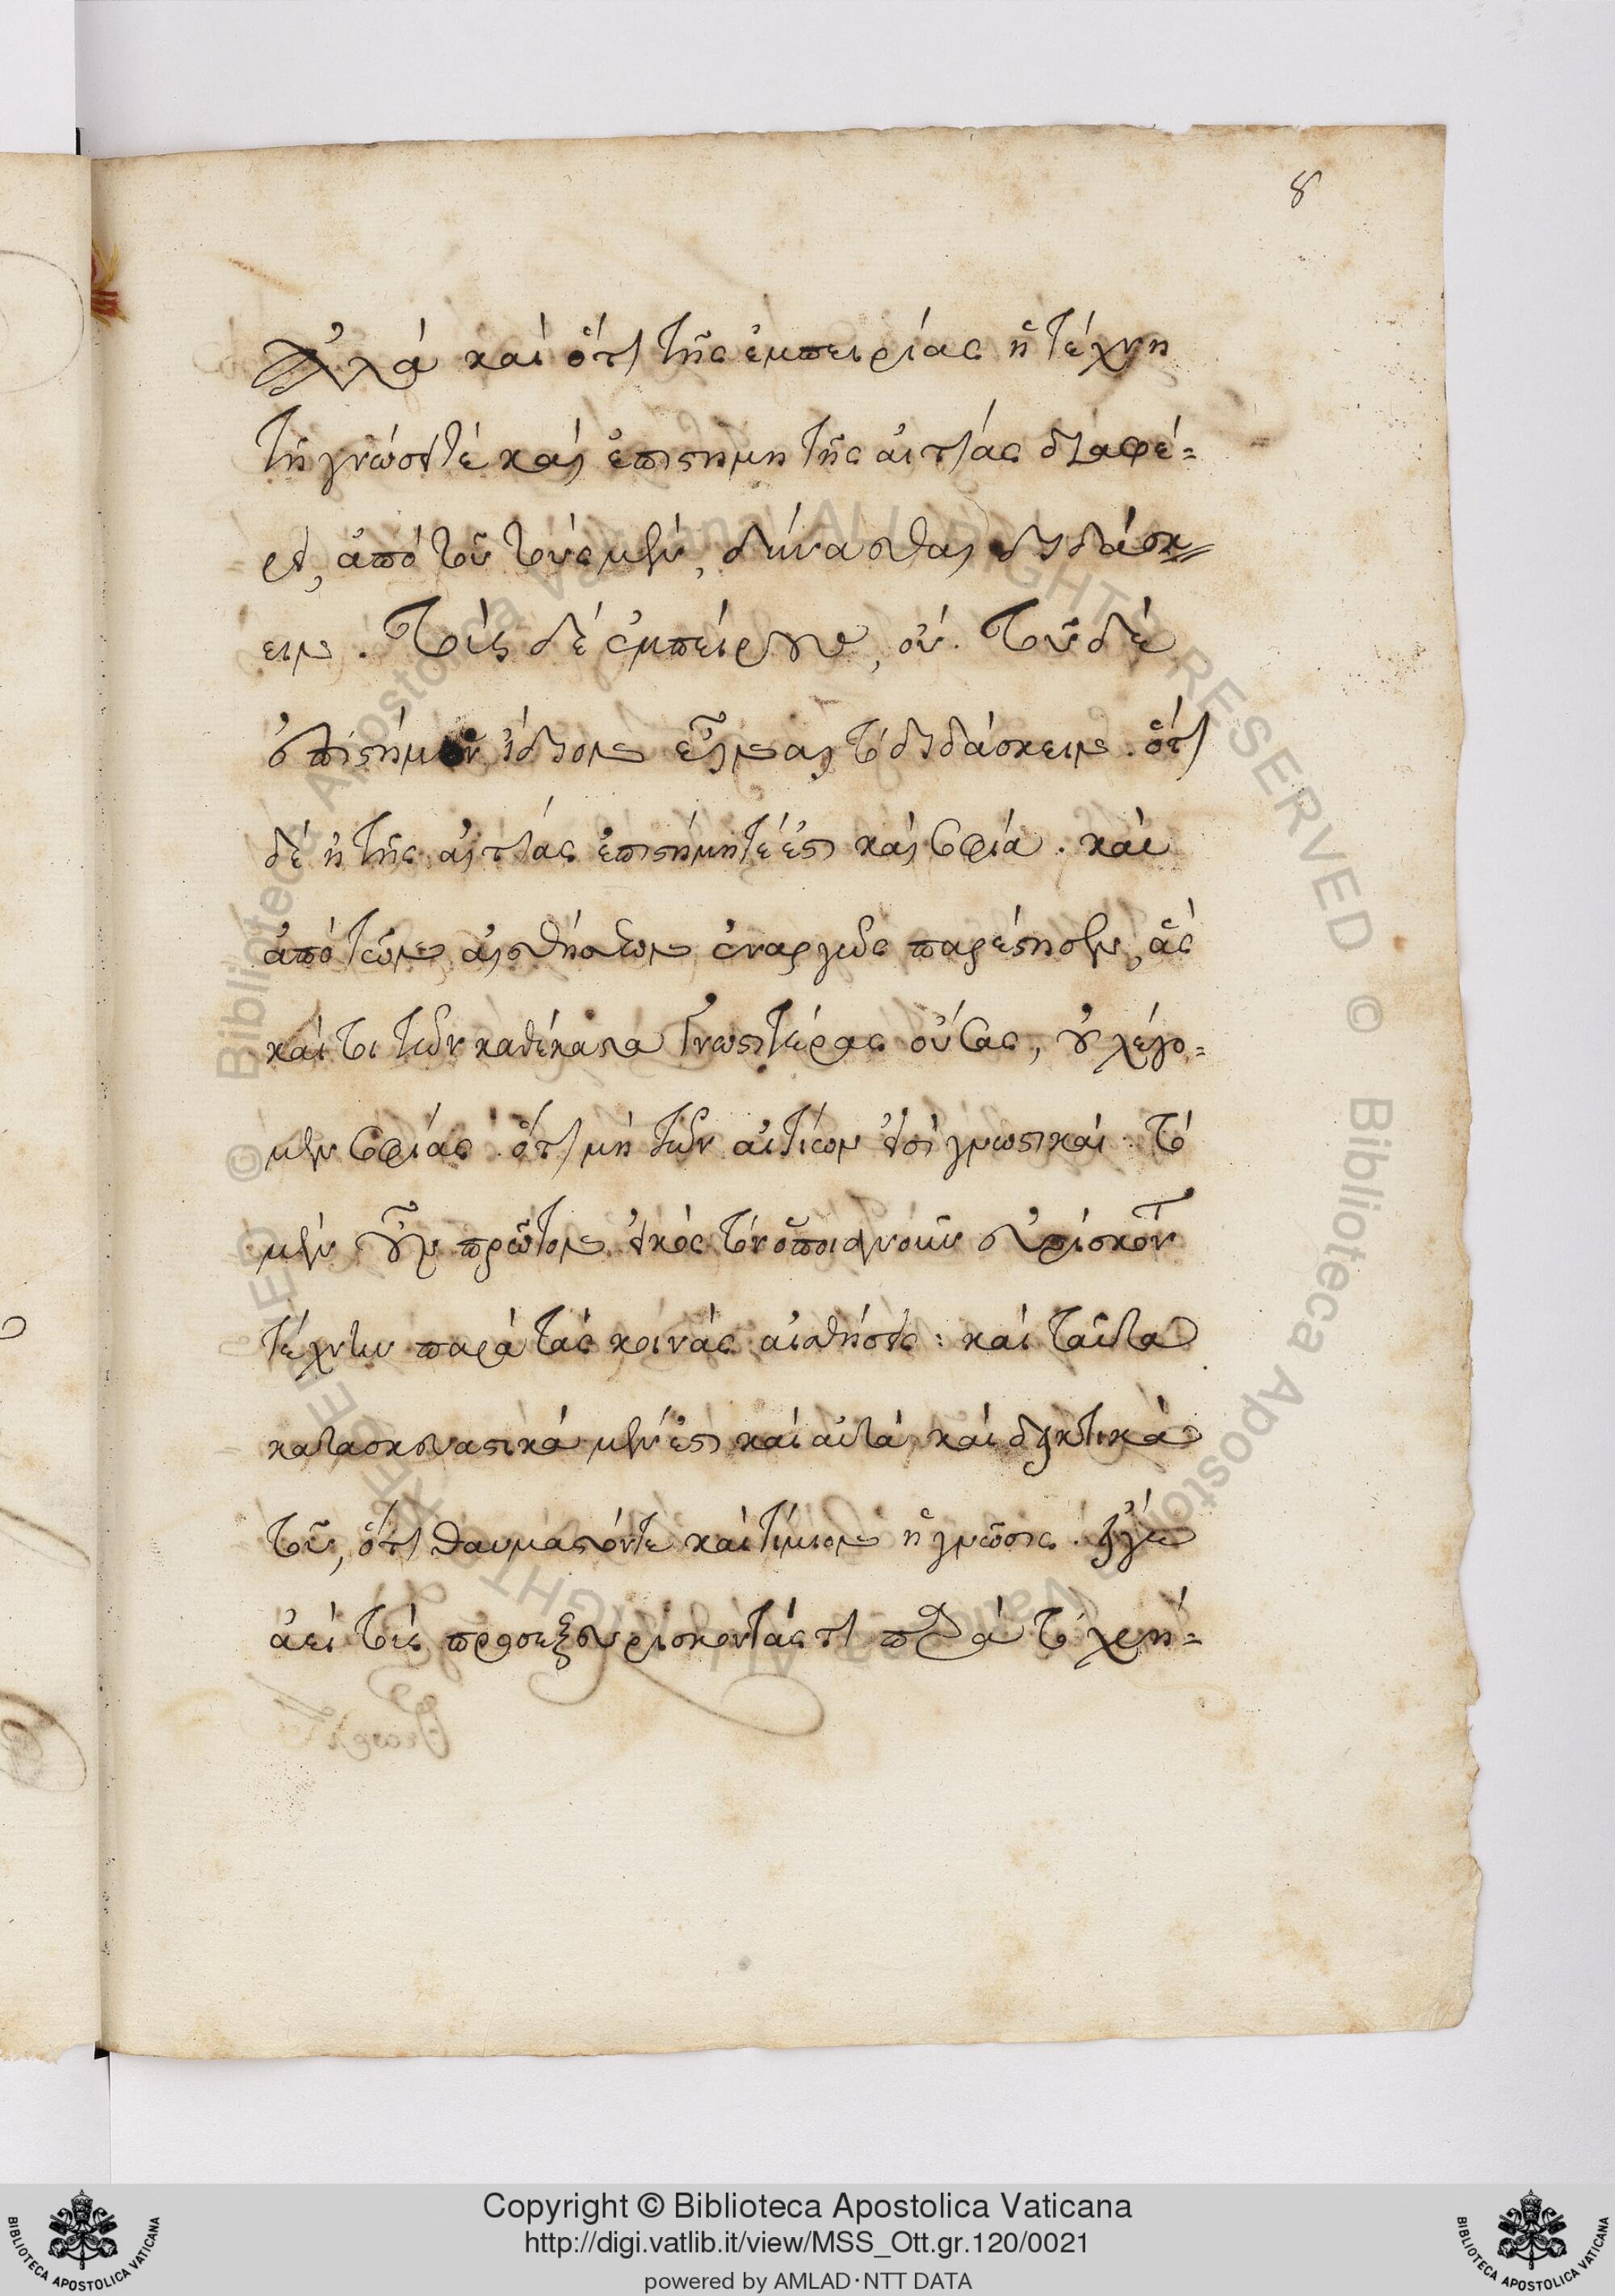 8
Ἀλλά καί ὅτι τῆς ἐμπειρίας ἡ τέχνη
τῇ γνώσει τέ καὶ ἐπιστημη τῆς αἰτίας διαφέ=
ρει, ἀπό τοῦ τούς μὲν, δύνασθαι διδάσκ=
ειν. Τοὺς δέ ἐμπείρους, οὐ. Τοῦ δέ
ἐπιστήμον ἴδιον εἶναι τό διδάσκειν. ὅτι
δέ ἡ τῆς αἰτίας ἐπιστήμη τέ ἐστι καὶ σοφία. καὶ
ἀπό τῶν αἰσθήσεων ἐναργῶς παρέστησεν, ἅς
καίτοι τῶν καθέκαστα γνωστέρας οὔσας, οὐ λέγο=
μεν σοφίας. ὅτι μή τῶν αἰτίων εἰσὶ γνωστικαί. τό
μέν οὖν πρῶτον εἰκός τόν ὁποιανοῦν εὑρίσκοντ
τέχνην παρά τάς κοινάς αἰσθήσεις: καί ταῦτα
κατασκευαστικά μέν ἐστι καί αὐτά, καί δεικτικά
τοῦ, ὅτι θαυμαστόν τε καί τίμιον ἡ γνῶσις.
ἀεί τούς προσεξευρίσκοντάς τι πολλά τό χρή=
Copyright © Biblioteca Apostolica Vaticana
http://digi.vatlib.it/view/MSS_Ott.gr.120/0021
powered by AMLAD·NTT DATA